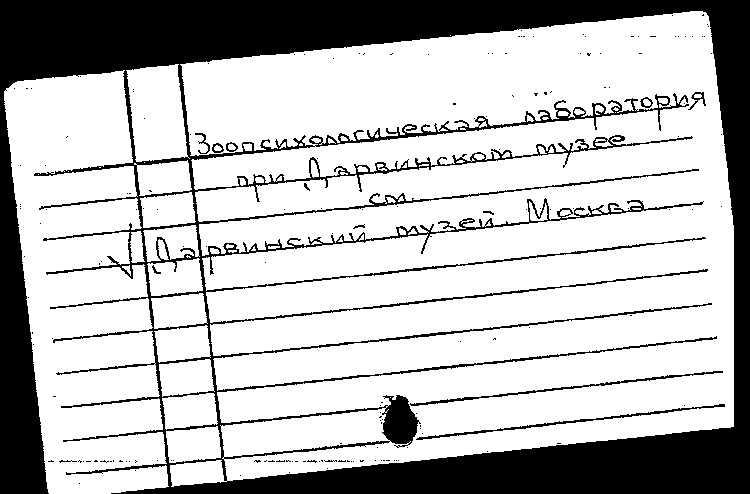 Зоопсихологическая лаборатория
при Дарвинском музее
см.
√ Дарвинский музей. Москва